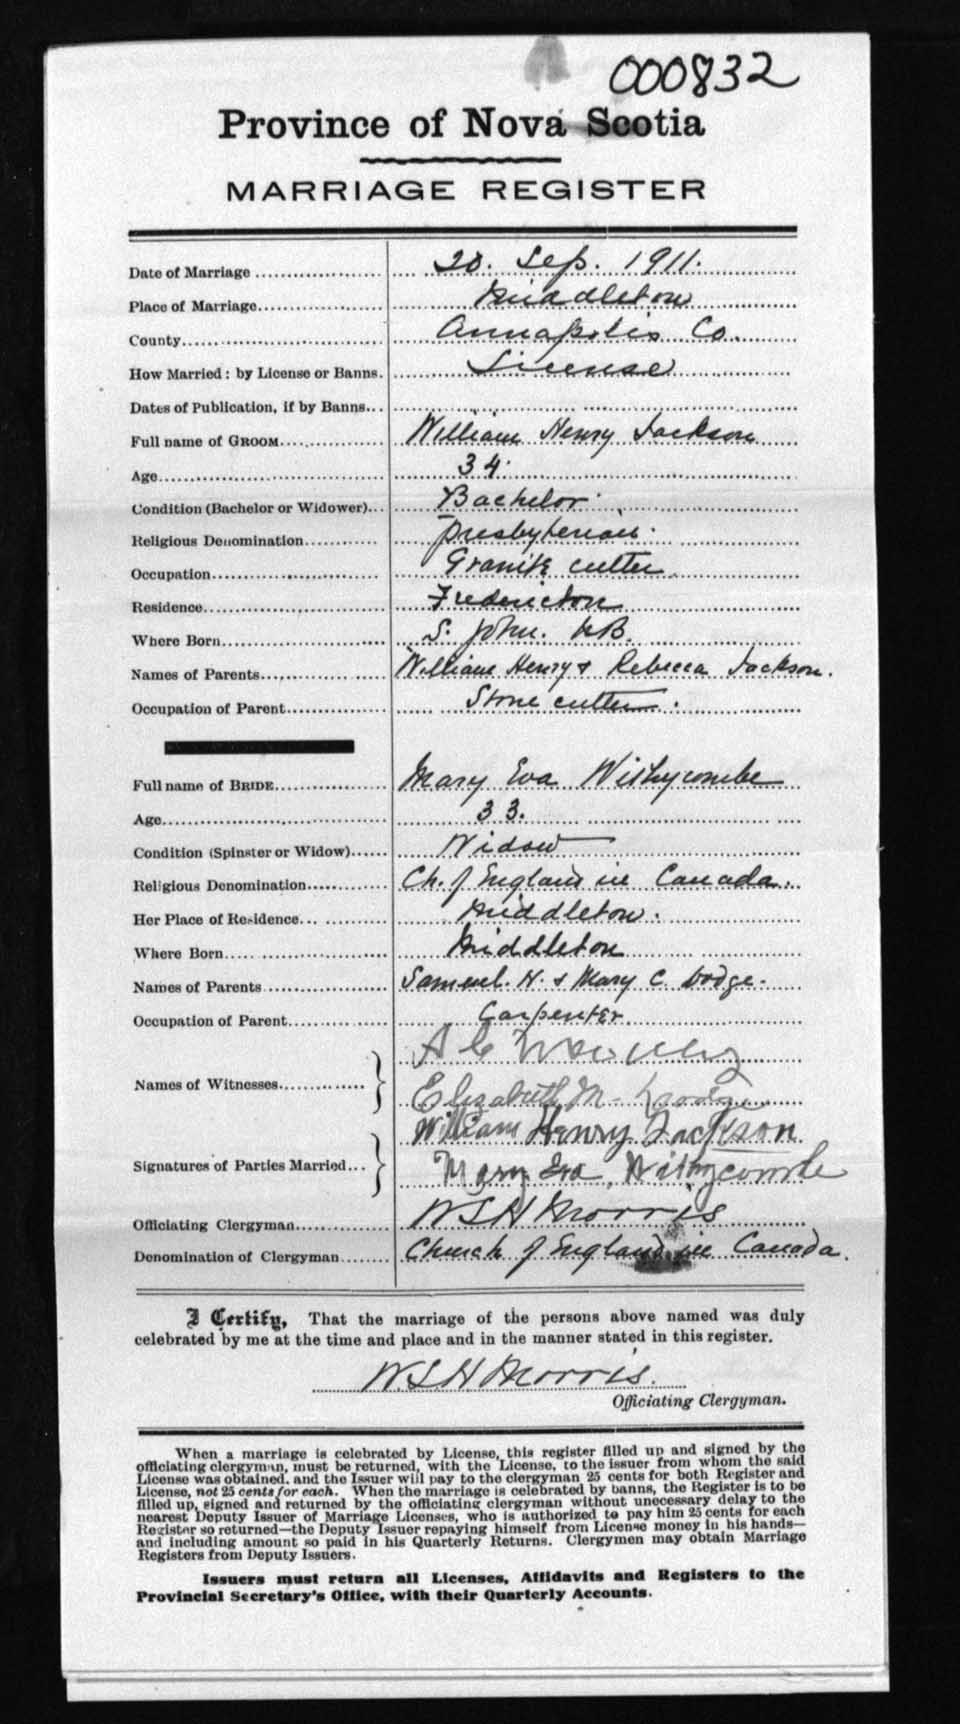 000832
Province of Nova Scotia
MARRIAGE REGISTER
Date of Marriage 20. Sep. 1911.
Place of Marriage Middleton
County Annapolis Co.
How Married: by License or Banns. License
Dates of Publication, if by Banns
Full name of GROOM William Henry Jackson
Age 34.
Condition (Bachelor or Widower) Bachelor.
Religious Denomination Presbyterian.
Occupation Granite cutter
Residence Fredericton
Where Born S. John. NB.
Names of Parents William Henry & Rebecca Jackson.
Occupation of Parent Stone cutter.
Full name of BRIDE Mary Eva Withycombe
Age 33.
Condition (Spinster or Widow) Widow
Religious Denomination Ch. of England in Canada.
Her Place of Residence Middleton.
Where Born Middleton
Names of Parents Samuel. H. & Mary C. Dodge.
Occupation of Parent Carpenter
A C
Names of Witnesses
Elizabeth M. Dodge
William Henry Jackson
Signatures of Parties Married
Mary Eva, Withycombe
Officiating Clergyman W S H Morris
Denomination of Clergyman Church of England in Canada.
I Certify, That the marriage of the persons above named was duly
celebrated by me at the time and place and in the manner stated in this register.
W. S. H. Morris.
Officiating Clergyman.
When a marriage is celebrated by License, this register filled up and signed by the
officiating clergyman, must be returned, with the License, to the issuer from whom the said
License was obtained, and the Issuer will pay to the clergyman 25 cents for both Register and
License, not 25 cents for each. When the marriage is celebrated by banns, the Register is to be
filled up, signed and returned by the officiating clergyman without unecessary delay to the
nearest Deputy Issuer of Marriage Licenses, who is authorized to pay him 25 cents for each
Register so returned—the Deputy Issuer repaying himself from License money in his hands—
and including amount so paid in his Quarterly Returns. Clergymen may obtain Marriage
Registers from Deputy Issuers.
Issuers must return all Licenses, Affidavits and Registers to the
Provincial Secretary's Office, with their Quarterly Accounts.